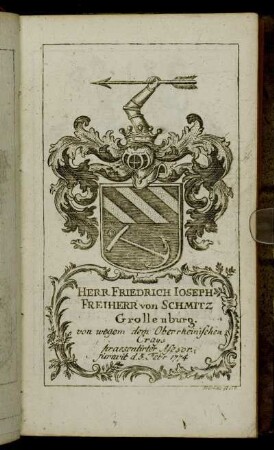 HERR FRIEDRICH IOSEPH
FREIHERR von SCHMITZ
Grollenburg.
von wegem dem Oberrheinischen
Crays
praesentirter Assessor.
juravit d. 8. Febr. 1774